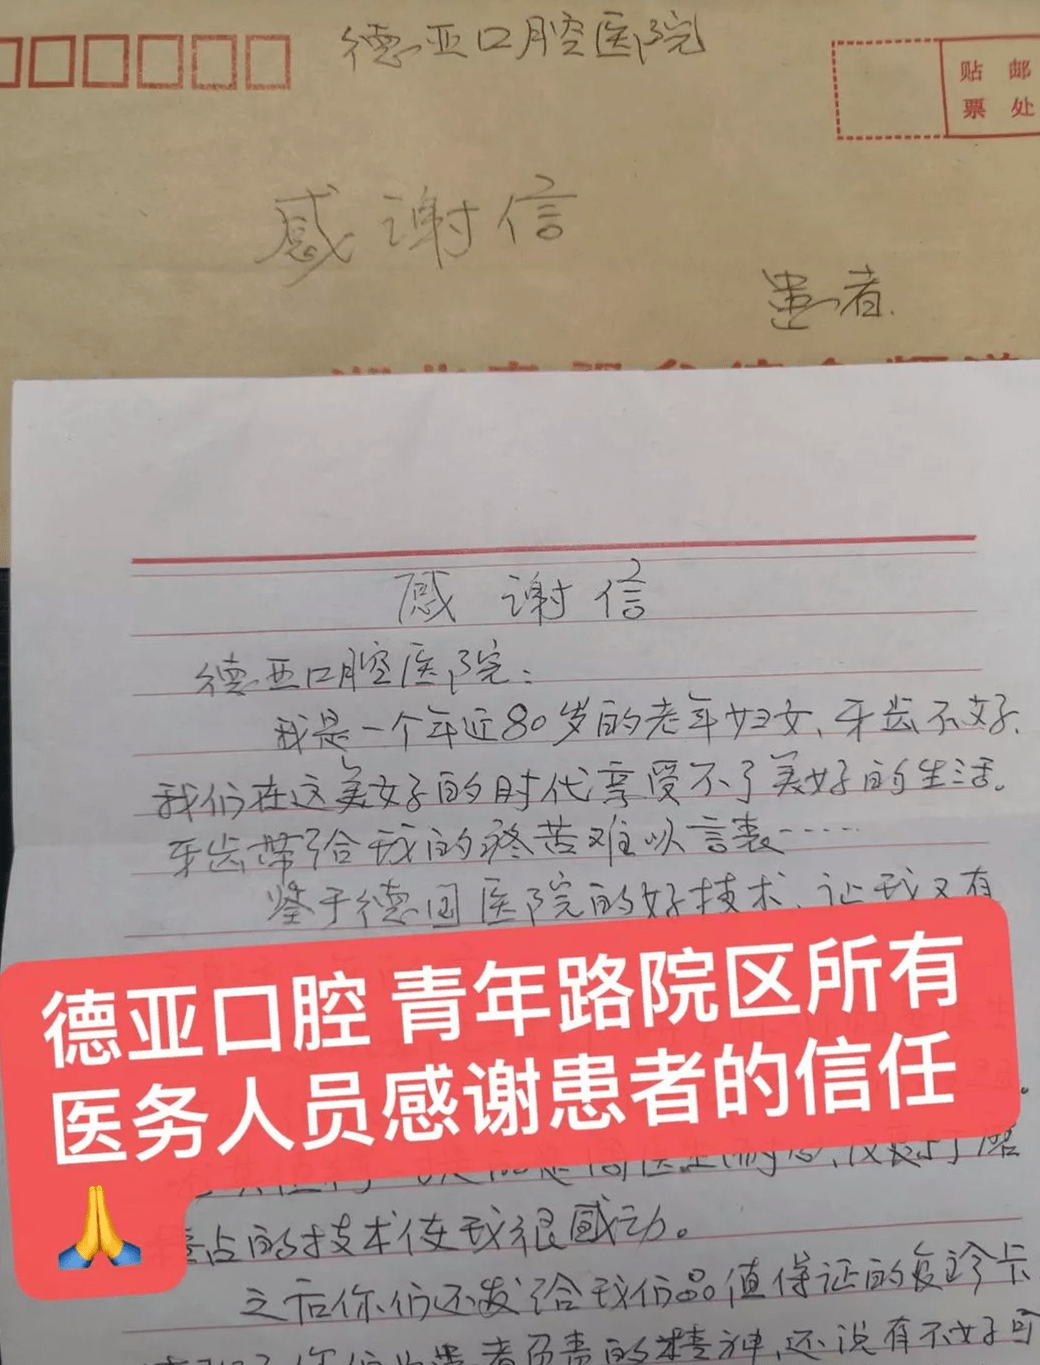 德亚口腔医院
贴 邮
票 处
感谢信
患者.
感 谢 信
德亚口腔医院:
我是一个年近80岁的老年妇女、牙齿不好、
我们在这美好的时代享受不了美好的生活。
牙齿带给我的疼苦难以言表……
鉴于德国医院的好技术、让我又有
德亚口腔 青年路院区所有
医务人员感谢患者的信任
🙏
的技术使我很感动。
之后你们还发给我们品值保证的复诊卡
你们为患者负责的精神,还说有不好可